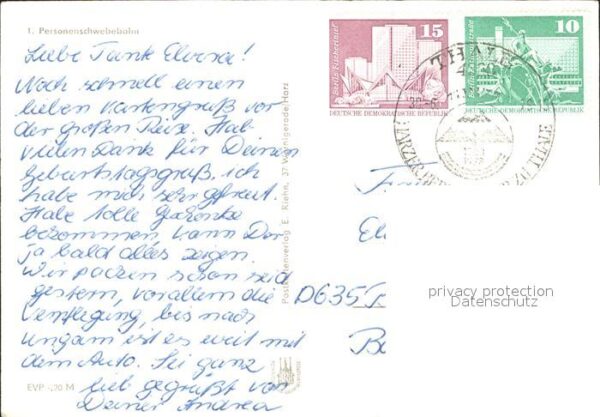 1. Personenschwebebahn
Liebe Tante Elvira!
Noch schnell einen
lieben Kartengruß vor
der großen Reise. Hab
vielen Dank für Deinen
Geburtstagsgruß. ich
habe mich sehr gefreut.
Habe tolle Geschenke
bekommen, kann Dir
ja bald alles zeigen.
Wir packen schon seid
gestern, vorallem die
Verpflegung, bis nach
Ungarn ist es weit mit
dem Auto. Sei ganz
lieb gegrüßt von
Deiner Andrea
EVP -,20 M
Postkartenverlag E. Riehn, 37 Wernigerode/Harz
15
Berlin Fischerinsel
DEUTSCHE DEMOKRATISCHE REPUBLIK
10
DEUTSCHE DEMOKRATISCHE REPUBLIK
THALE
D635
privacy protection
Datenschutz